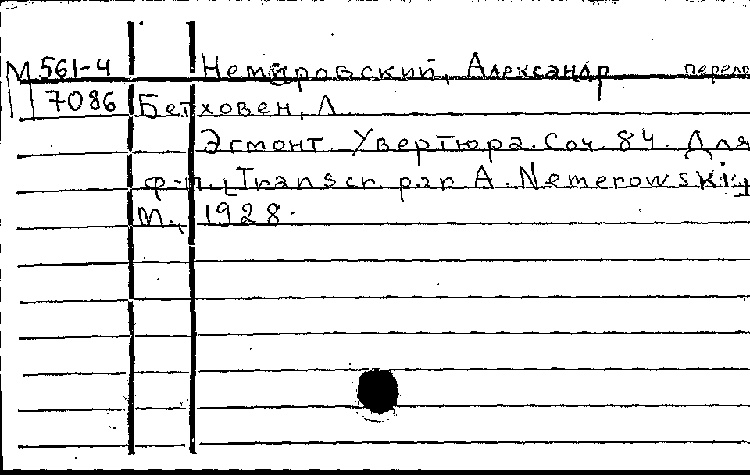 М 561-4 Немировский, Александр перел
7086 Бетховен, Л.
Эгмонт. Увертюра. Соч. 84. Для
ф-п. [Transcr. par A. Nemerowskiy]
М., 1928.